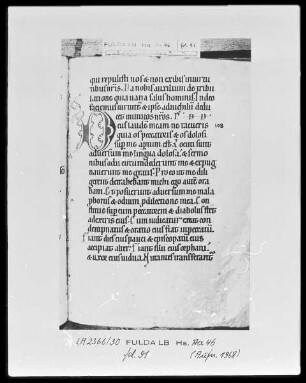 FULDA LB Hs. Aa 46 fol. 91
qui repulisti nos & non exibis in virtu
tibus nris. Da nobis auxilium de tribu
latione quia vana salus hominis. In deo
faciemus virtutem & ipse
inimicos nros.
Deus laudem meam ne tacueris
quia os peccatoris & os dolosi
sup me aptum est. Locuti sunt
adversum me lingua dolosa & sermo
nibus odii circumdederunt me & expug
naverunt me gratis. Pro eo ut me dili
gerent detrahebant michi ego aut ora
bam. Et posuerunt adversum me mala
p bonis & odium p dilectione mea. Con
stitue sup eum peccatorem & diabolus stet
a dextris eius. Cum iudicatur exeat con
dempnatus & oratio eius fiat in peccatum.
Fiant dies eius pauci & episcopatum eius
accipiat alter. Fiant filii eius orphani
& uxor eius vidua. Nutantes transferantur
LA 2366/30 FULDA LB Hs. Aa 46
fol. 91 (Aufn. 1968)